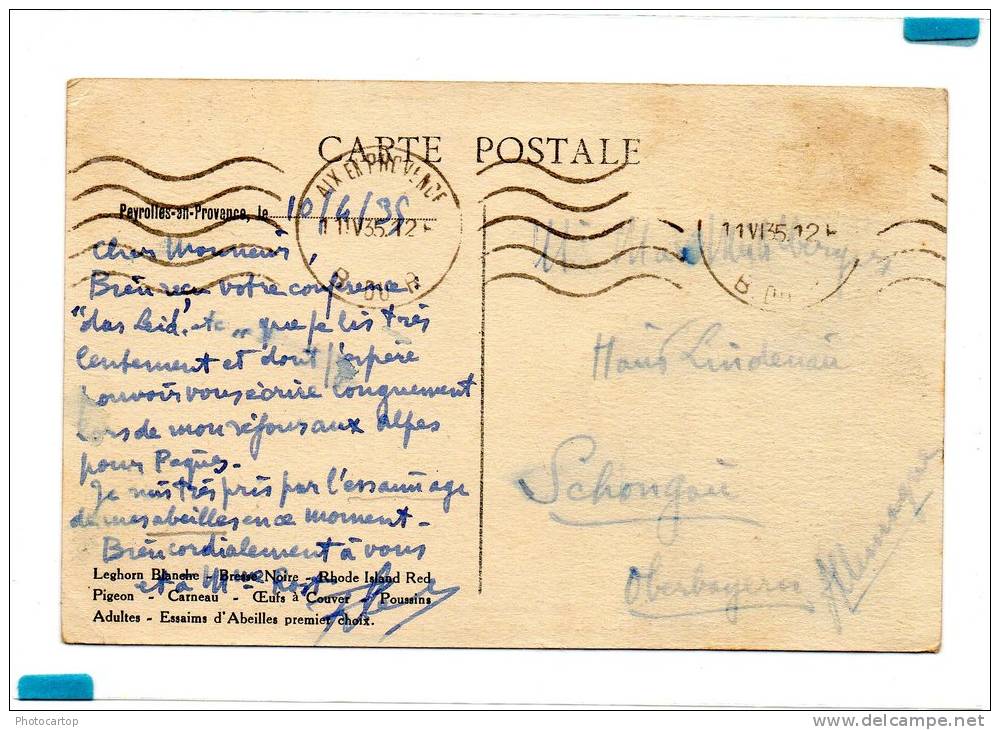 CARTE POSTALE
AIX EN PROVENCE
Peyrolles-en-Provence, le 10/4/35
11 IV 35 12
B. DU R
Cher Monsieur,
Bien reçu votre conférence
"das Leid" etc, que je lis très
lentement et dont j'espère
pouvoir vous écrire longuement
lors de mon séjour aux alpes
pour Paques.
Je suis très pris par l'essaimage
de mes abeilles en ce moment -
Bien cordialement à vous
et à Mme
Leghorn Blanche - Bresse Noire - Rhode Island Red
Pigeon - Carneau - Œufs à Couver - Poussins
Adultes - Essaims d'Abeilles premier choix.
11 IV 35 12
B. DU
Haus Lindenau
Schongau
Oberbayern
Allemagne
Photocartop
www.delcampe.net